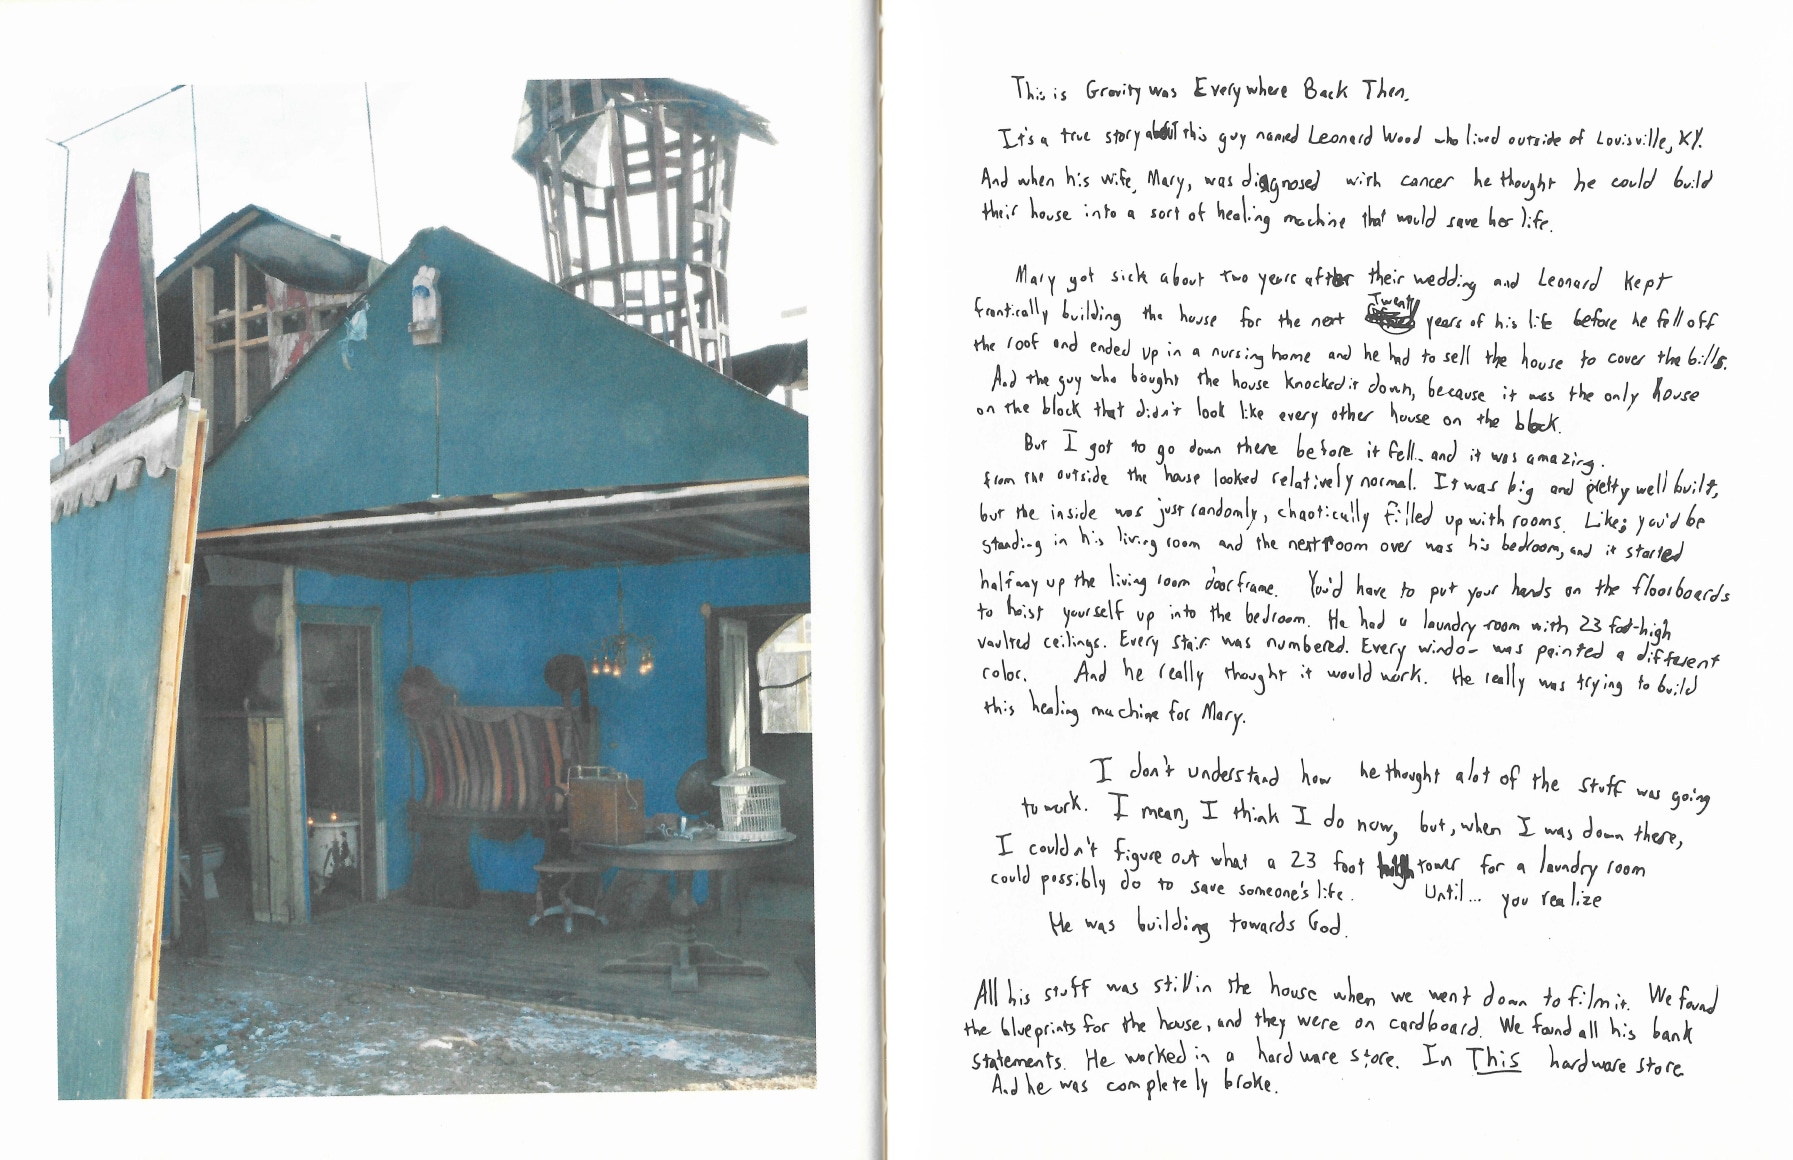 This is Gravity was Everywhere Back Then.
It's a true story about this guy named Leonard Wood who lived outside of Louisville, KY.
And when his wife, Mary, was diagnosed with cancer he thought he could build
their house into a sort of healing machine that would save her life.
Mary got sick about two years after their wedding and Leonard kept
frantically building the house for the next Twenty years of his life before he fell off
the roof and ended up in a nursing home and he had to sell the house to cover the bills.
And the guy who bought the house knocked it down, because it was the only house
on the block that didn't look like every other house on the block.
But I got to go down there before it fell.. and it was amazing.
from the outside the house looked relatively normal. It was big and pretty well built,
but the inside was just randomly, chaotically filled up with rooms. Like; you'd be
standing in his living room and the next room over was his bedroom, and it started
halfway up the living room doorframe. You'd have to put your hands on the floorboards
to hoist yourself up into the bedroom. He had a laundry room with 23 foot-high
vaulted ceilings. Every stair was numbered. Every window was painted a different
color. And he really thought it would work. He really was trying to build
this healing machine for Mary.
I don't understand how he thought alot of the stuff was going
to work. I mean, I think I do now, but, when I was down there,
I couldn't figure out what a 23 foot high tower for a laundry room
could possibly do to save someone's life. Until... you realize
He was building towards God.
All his stuff was still in the house when we went down to film it. We found
the blueprints for the house, and they were on cardboard. We found all his bank
statements. He worked in a hardware store. In This hardware store
And he was completely broke.